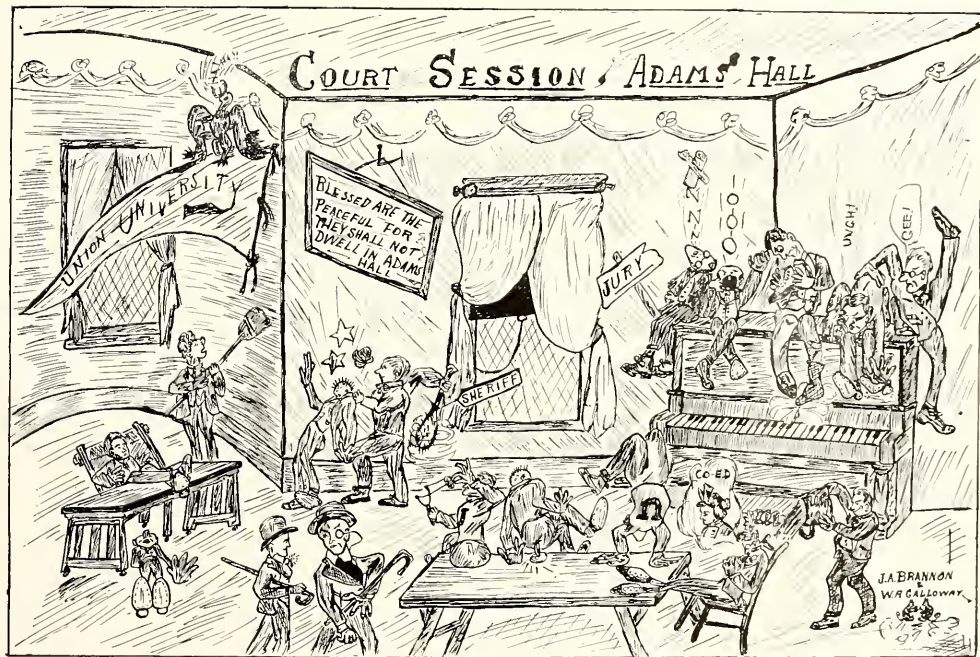 COURT SESSION. ADAMS' HALL
UNION UNIVERSITY
BLESSED ARE THE
PEACEFUL FOR
THEY SHALL NOT
DWELL IN ADAMS
HALL
JURY
UNGH!
GEE!
SHERIFF
CO-ED
J.A. BRANNON
&
W.A. GALLOWAY